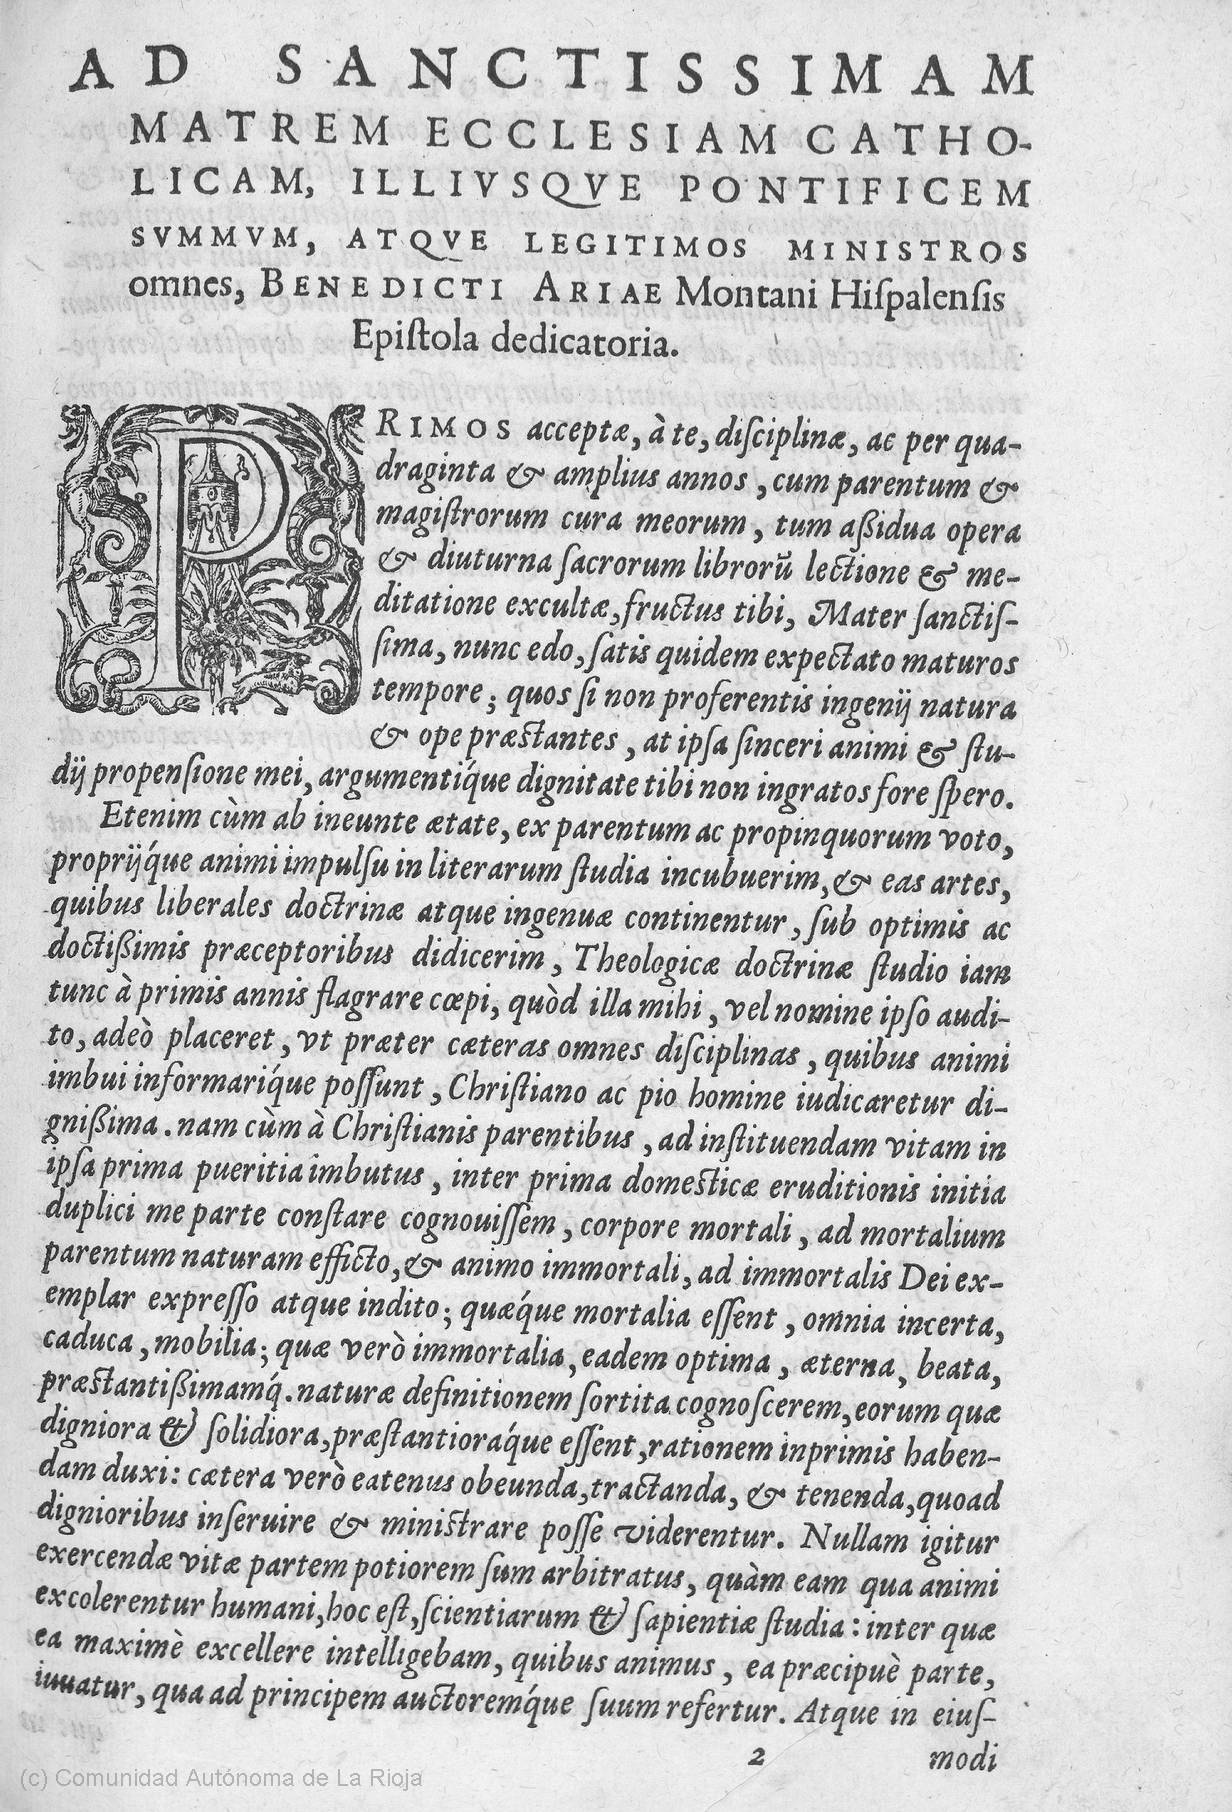 AD SANCTISSIMAM
MATREM ECCLESIAM CATHO-
LICAM, ILLIVSQVE PONTIFICEM
SVMMVM, ATQVE LEGITIMOS MINISTROS
omnes, BENEDICTI ARIAE Montani Hiſpalenſis
Epiſtola dedicatoria.
PRIMOS acceptæ, à te, diſciplinæ, ac per qua-
draginta & amplius annos, cum parentum &
magiſtrorum cura meorum, tum aßidua opera
& diuturna ſacrorum librorū lectione & me-
ditatione excultæ, fructus tibi, Mater ſanctiſ-
ſima, nunc edo, ſatis quidem expectato maturos
tempore; quos ſi non proferentis ingenij natura
& ope præstantes, at ipſa ſinceri animi & ſtu-
dij propenſione mei, argumentíque dignitate tibi non ingratos fore ſpero.
Etenim cùm ab ineunte ætate, ex parentum ac propinquorum voto,
proprijq́ue animi impulſu in literarum ſtudia incubuerim, & eas artes,
quibus liberales doctrinæ atque ingenuæ continentur, ſub optimis ac
doctißimis præceptoribus didicerim, Theologicæ doctrinæ ſtudio iam
tunc à primis annis flagrare cœpi, quòd illa mihi, vel nomine ipſo audi-
to, adeò placeret, vt præter cæteras omnes diſciplinas, quibus animi
imbui informaríque poſſunt, Chriſtiano ac pio homine iudicaretur di-
gnißima. nam cùm à Chriſtianis parentibus, ad inſtituendam vitam in
ipſa prima pueritia imbutus, inter prima domesticæ eruditionis initia
duplici me parte conſtare cognouiſſem, corpore mortali, ad mortalium
parentum naturam efficto, & animo immortali, ad immortalis Dei ex-
emplar expreſſo atque indito; quæq́ue mortalia eſſent, omnia incerta,
caduca, mobilia; quæ verò immortalia, eadem optima, æterna, beata,
præstantißimamq́. naturæ definitionem ſortita cognoſcerem, eorum quæ
digniora & ſolidiora, præſtantioráque eſſent, rationem inprimis haben-
dam duxi: cætera verò eatenus obeunda, tractanda, & tenenda, quoad
dignioribus inſeruire & miniſtrare poſſe viderentur. Nullam igitur
exercendæ vitæ partem potiorem ſum arbitratus, quàm eam qua animi
excolerentur humani, hoc eſt, ſcientiarum & ſapientiæ ſtudia: inter quæ
ea maximè excellere intelligebam, quibus animus, ea præcipuè parte,
iuuatur, qua ad principem auctoremq́ue ſuum refertur. Atque in eiuſ-
2 modi
(c) Comunidad Autónoma de La Rioja